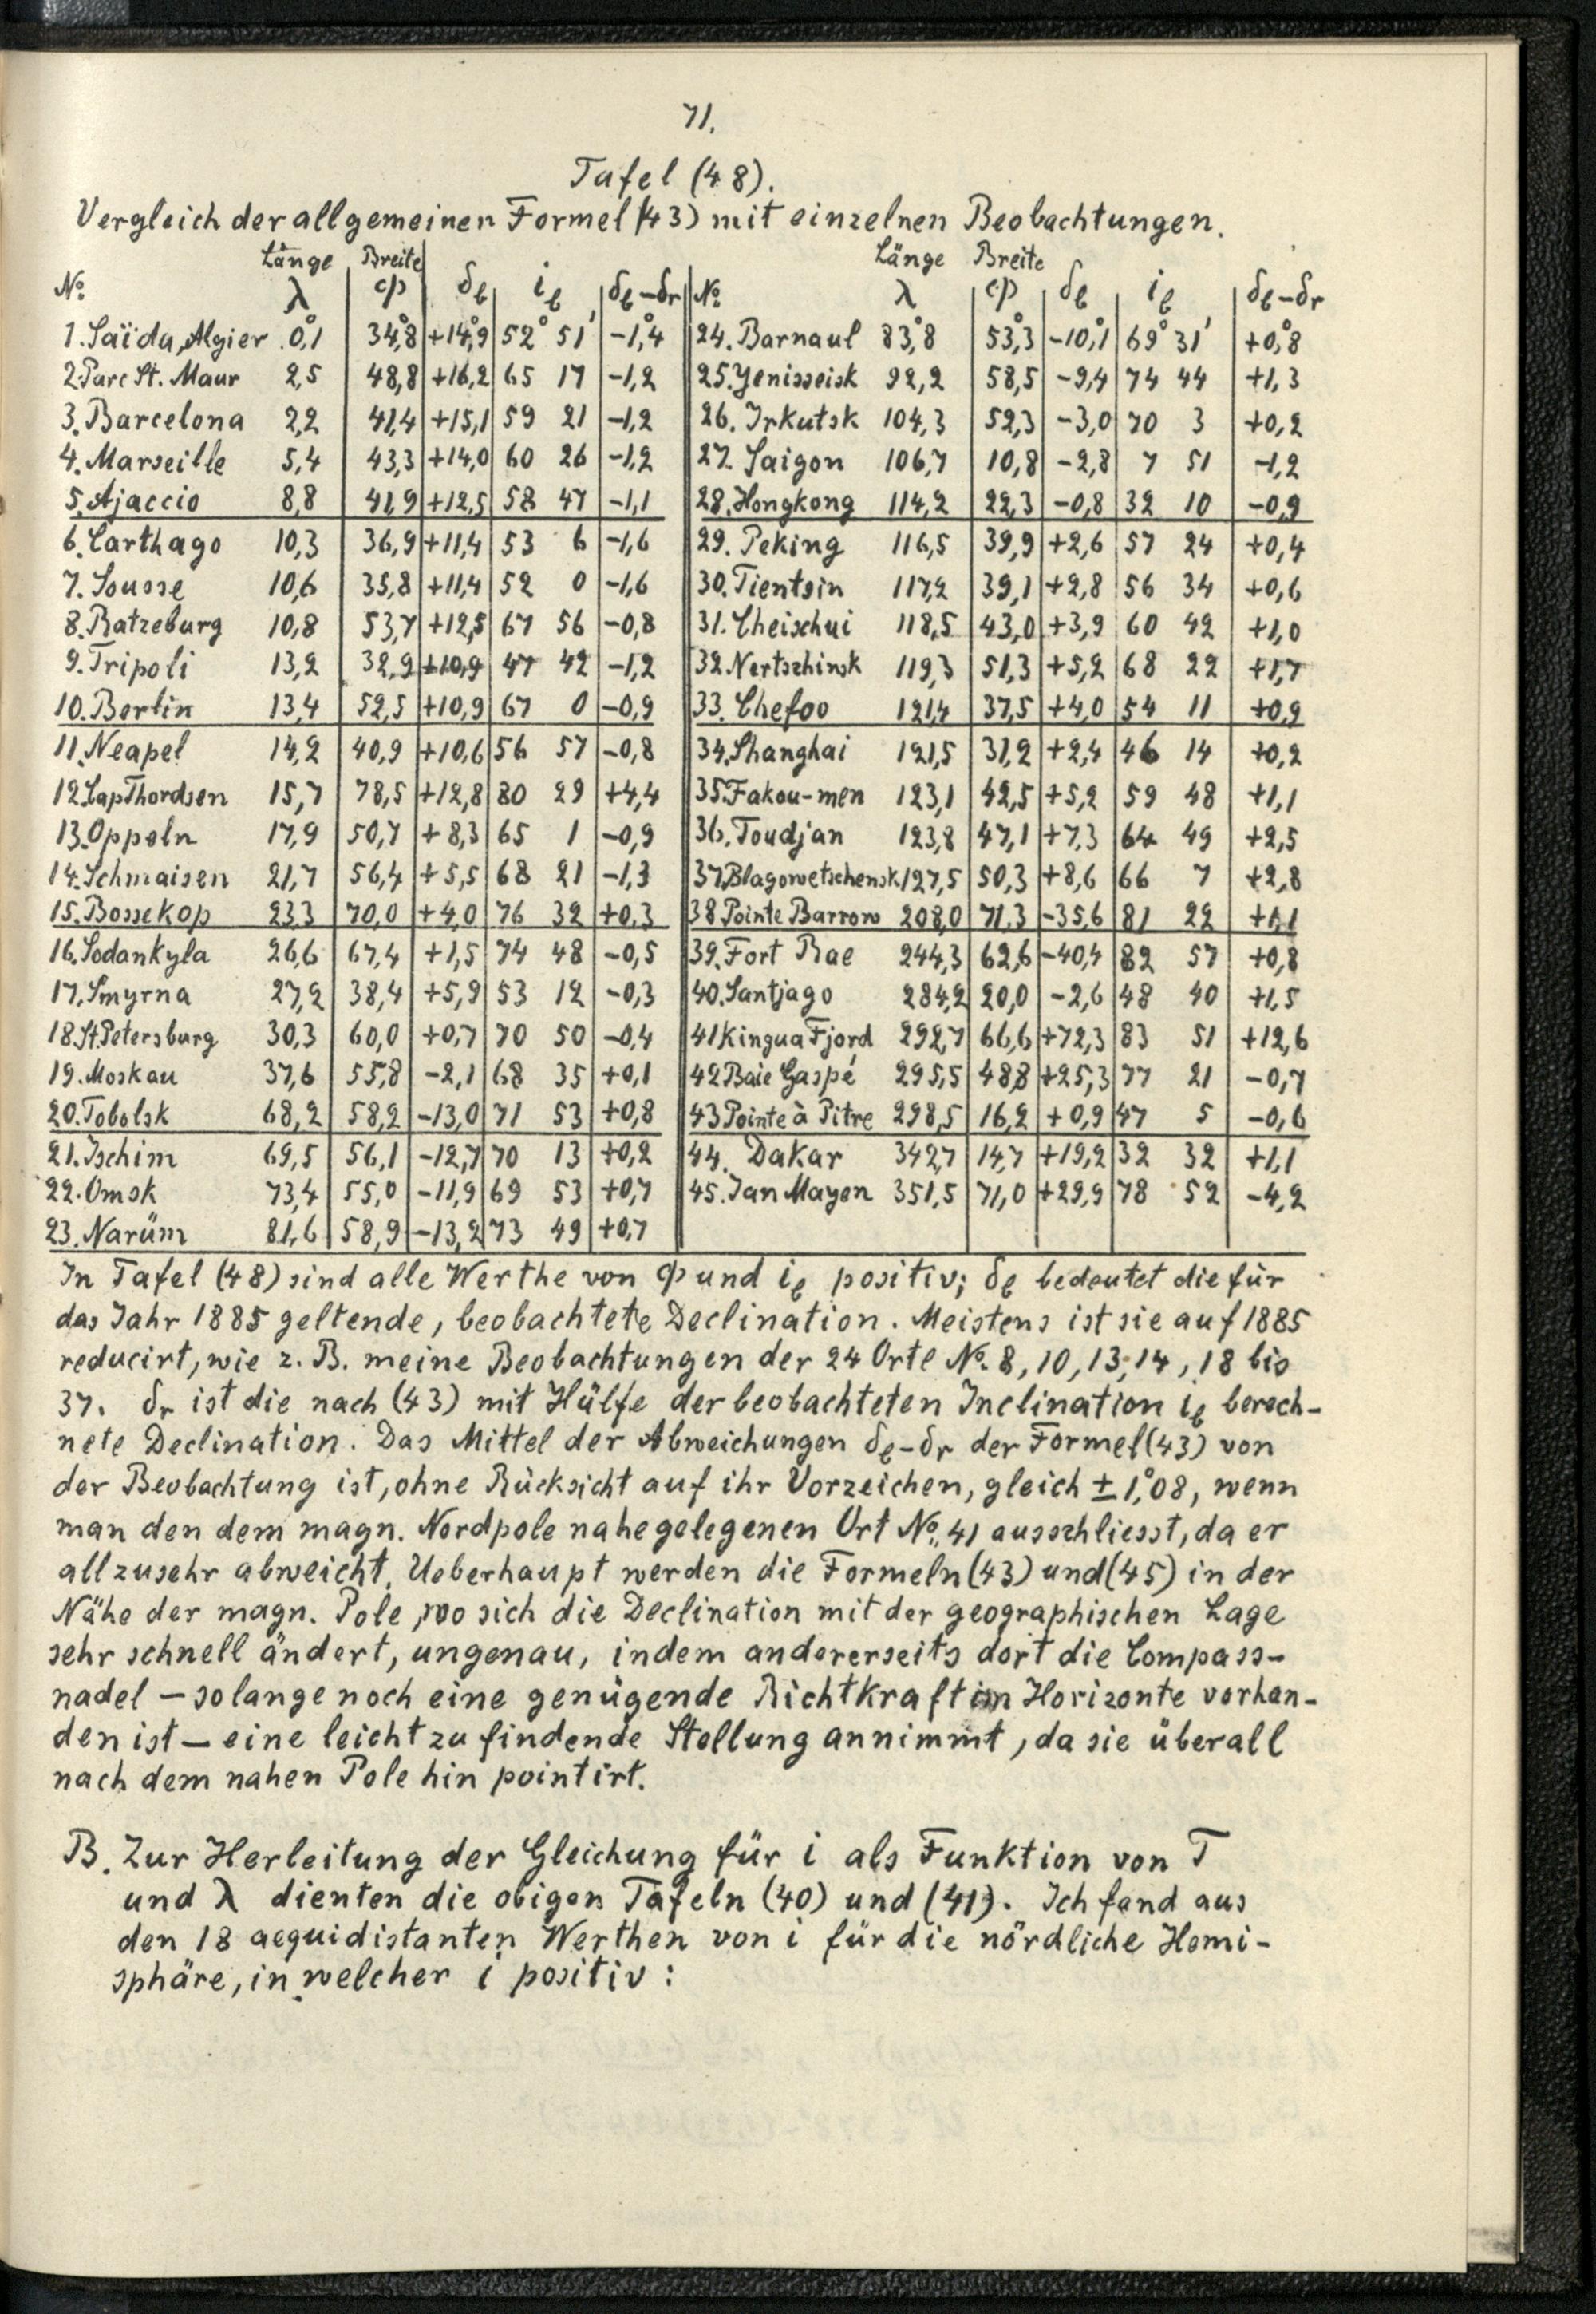 71.
Tafel (48).
Vergleich der allgemeinen Formel (43) mit einzelnen Beobachtungen.
Länge Breite Länge Breite
No. λ φ δb ib δb–δr No. λ φ δb ib δb–δr
1. Saïda, Algier 0°,1 34°,8 +14°,9 52° 51' –1°,4 24. Barnaul 83°,8 53°,3 –10°,1 69° 31' +0°,8
2. Parc St. Maur 2,5 48,8 +16,2 65 17 –1,2 25. Yenisseisk 92,2 58,5 –9,4 74 44 +1,3
3. Barcelona 2,2 41,4 +15,1 59 21 –1,2 26. Irkutsk 104,3 52,3 –3,0 70 3 +0,2
4. Marseille 5,4 43,3 +14,0 60 26 –1,2 27. Saigon 106,7 10,8 –2,8 7 51 –1,2
5. Ajaccio 8,8 41,9 +12,5 58 47 –1,1 28. Hongkong 114,2 22,3 –0,8 32 10 –0,9
6. Carthago 10,3 36,9 +11,4 53 6 –1,6 29. Peking 116,5 39,9 +2,6 57 24 +0,4
7. Sousse 10,6 35,8 +11,4 52 0 –1,6 30. Tientsin 117,2 39,1 +2,8 56 34 +0,6
8. Ratzeburg 10,8 53,7 +12,5 67 56 –0,8 31. Cheischui 118,5 43,0 +3,9 60 42 +1,0
9. Tripoli 13,2 32,9 +10,9 47 42 –1,2 32. Nertschinsk 119,3 51,3 +5,2 68 22 +1,7
10. Berlin 13,4 52,5 +10,9 67 0 –0,9 33. Chefoo 121,4 37,5 +4,0 54 11 +0,9
11. Neapel 14,2 40,9 +10,6 56 57 –0,8 34. Shanghai 121,5 31,2 +2,4 46 14 +0,2
12. Cap Thordsen 15,7 78,5 +12,8 80 29 +4,4 35. Fakou-men 123,1 42,5 +5,2 59 48 +1,1
13. Oppeln 17,9 50,7 +8,3 65 1 –0,9 36. Toudjan 123,8 47,1 +7,3 64 49 +2,5
14. Schmaisen 21,7 56,4 +5,5 68 21 –1,3 37. Blagowetschensk 127,5 50,3 +8,6 66 7 +2,8
15. Bossekop 23,3 70,0 +4,0 76 32 +0,3 38 Pointe Barrow 208,0 71,3 –35,6 81 22 +1,1
16. Sodankyla 26,6 67,4 +1,5 74 48 –0,5 39. Fort Rae 244,3 62,6 –40,4 82 57 +0,8
17. Smyrna 27,2 38,4 +5,9 53 12 –0,3 40. Santjago 284,2 20,0 –2,6 48 40 +1,5
18. St. Petersburg 30,3 60,0 +0,7 70 50 –0,4 41 Kingua Fjord 292,7 66,6 +72,3 83 51 +12,6
19. Moskau 37,6 55,8 –2,1 68 35 +0,1 42 Baie Gaspé 295,5 48,8 +25,3 77 21 –0,7
20. Tobolsk 68,2 58,2 –13,0 71 53 +0,8 43 Pointe à Pitre 298,5 16,2 +0,9 47 5 –0,6
21. Ischim 69,5 56,1 –12,7 70 13 +0,2 44. Dakar 342,7 14,7 +19,2 32 32 +1,1
22. Omsk 73,4 55,0 –11,9 69 53 +0,7 45. Jan Mayen 351,5 71,0 +29,9 78 52 –4,2
23. Narüm 81,6 58,9 –13,2 73 49 +0,7
In Tafel (48) sind alle Werthe von φ und ib positiv; δb bedeutet die für
das Jahr 1885 geltende, beobachtete Declination. Meistens ist sie auf 1885
reducirt, wie z. B. meine Beobachtungen der 24 Orte No. 8, 10, 13, 14, 18 bis
37. δr ist die nach (43) mit Hülfe der beobachteten Inclination ib berech-
nete Declination. Das Mittel der Abweichungen δb–δr der Formel (43) von
der Beobachtung ist, ohne Rücksicht auf ihr Vorzeichen, gleich ± 1°,08, wenn
man den dem magn. Nordpole nahe gelegenen Ort No. 41 ausschliesst, da er
allzusehr abweicht. Ueberhaupt werden die Formeln (43) und (45) in der
Nähe der magn. Pole, wo sich die Declination mit der geographischen Lage
sehr schnell ändert, ungenau, indem andererseits dort die Compass-
nadel – solange noch eine genügende Richtkraft im Horizonte vorhan-
den ist – eine leicht zu findende Stellung annimmt, da sie überall
nach dem nahen Pole hin pointirt.
B. Zur Herleitung der Gleichung für i als Funktion von T
und λ dienten die obigen Tafeln (40) und (41). Ich fand aus
den 18 aequidistanten Werthen von i für die nördliche Hemi-
sphäre, in welcher i positiv: